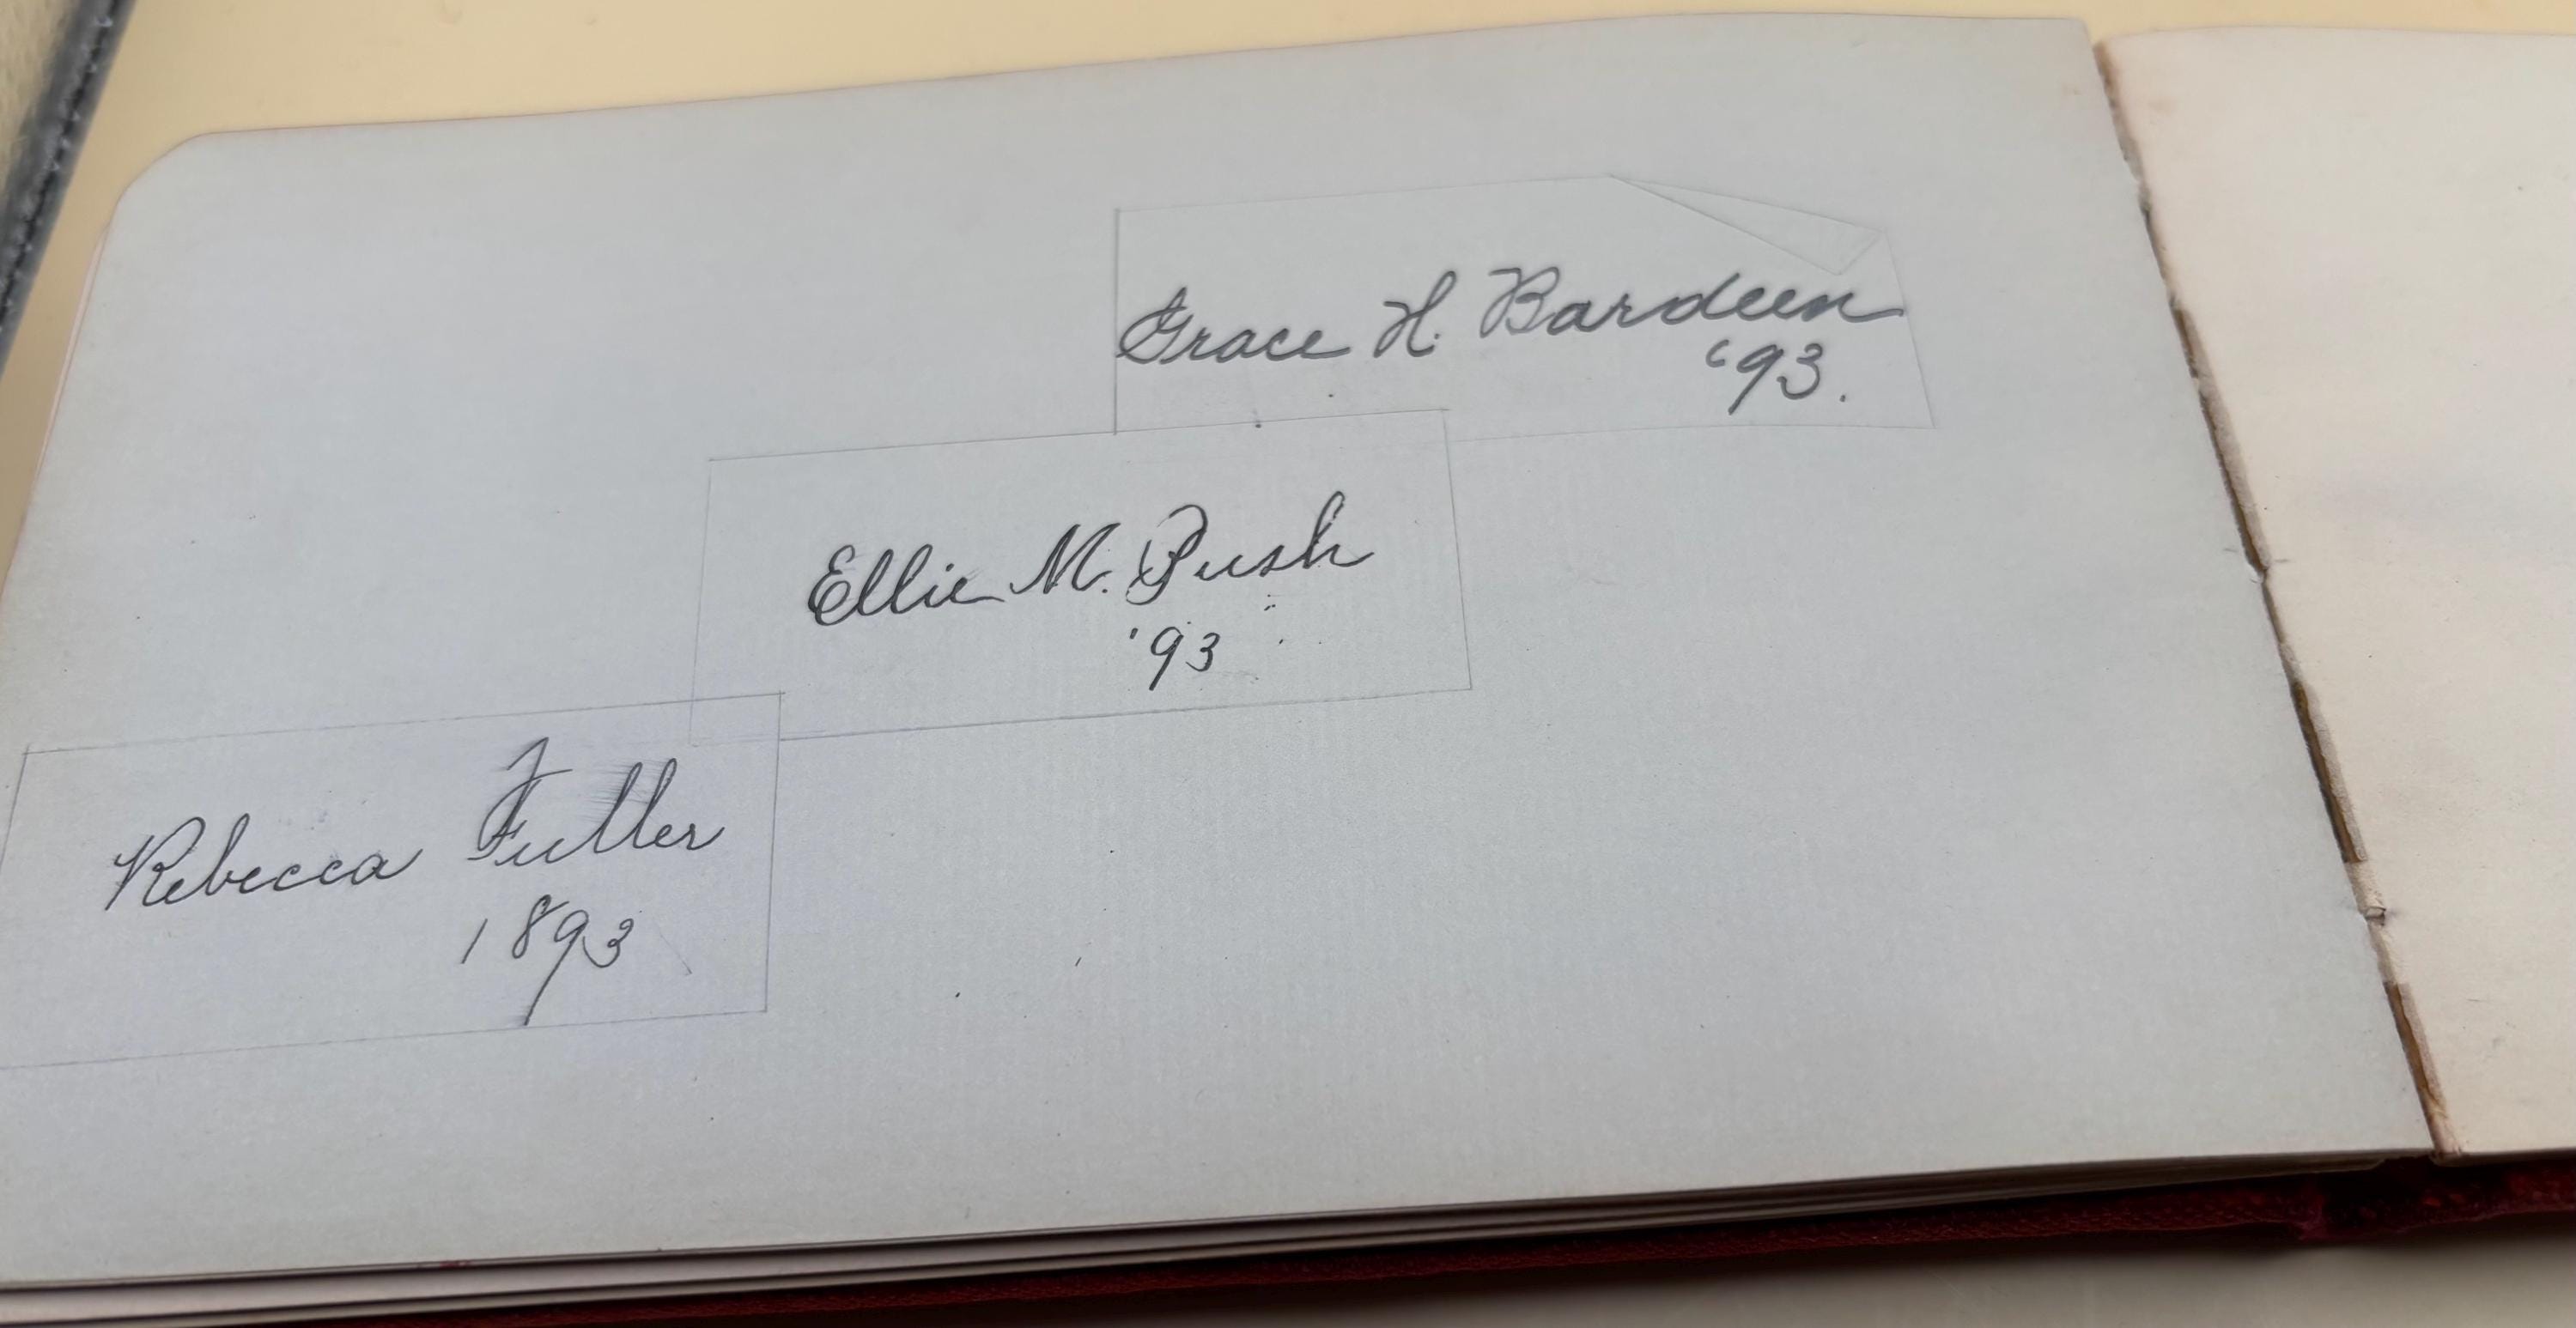 Grace H. Bardeen
'93.
Ellie M. Push
'93
Rebecca Fuller
1893